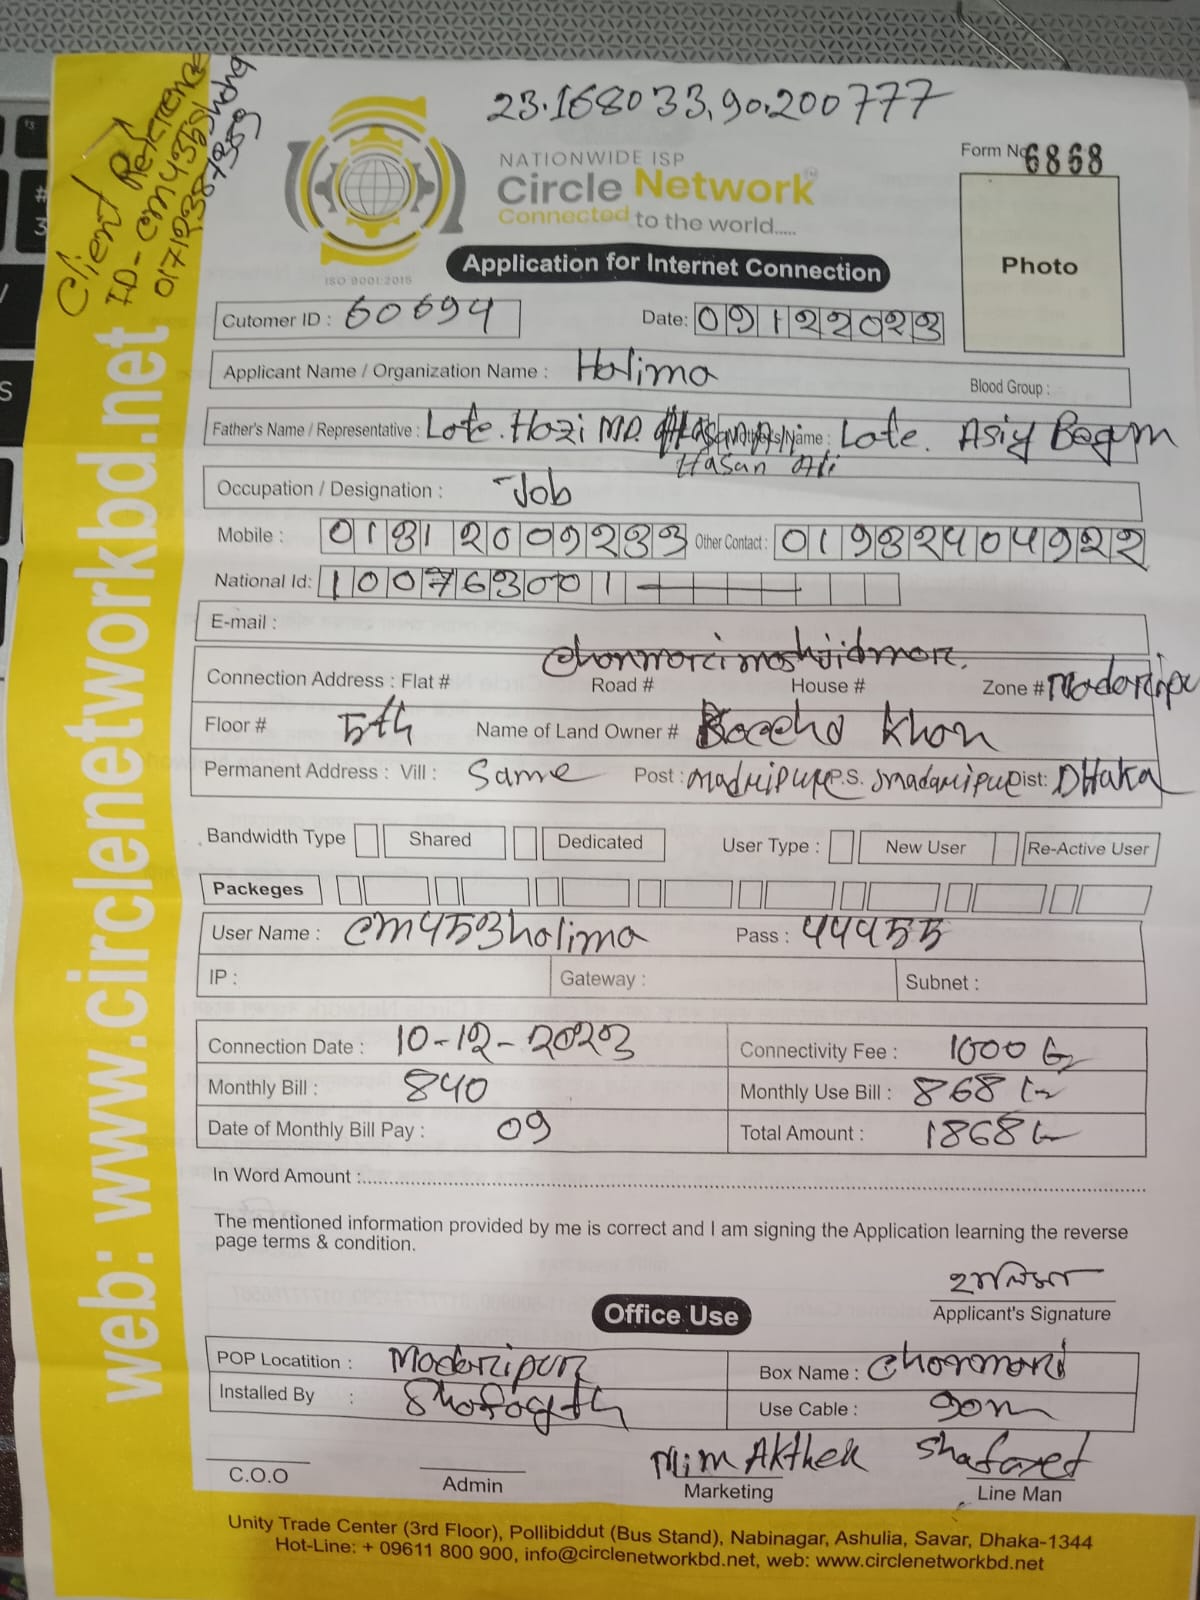 23.168033, 90.200777
Client Reference
ID-cm435
01712387359
NATIONWIDE ISP
Circle Network
Connected to the world.....
ISO 9001:2015
Form No 6868
Photo
Application for Internet Connection
Cutomer ID : 60694
Date: 09122023
Applicant Name / Organization Name : Halima
Blood Group :
Father's Name / Representative : Late. Hazi MD. Name : Late. Asiy Begum
Hasan Ali
Occupation / Designation : Job
Mobile : 01312009233 Other Contact : 01982404922
National Id: 100763001
E-mail :
Connection Address : Flat # Road # House # Zone #
Floor # 5th Name of Land Owner # Khan
Permanent Address : Vill : Same Post : madripur P.S. madaripur Dist: DHaka
Bandwidth Type Shared Dedicated User Type : New User Re-Active User
Packeges
User Name : cm453halima Pass : 44455
IP : Gateway : Subnet :
Connection Date : 10-12-2023 Connectivity Fee : 1000
Monthly Bill : 840 Monthly Use Bill : 868
Date of Monthly Bill Pay : 09 Total Amount : 1868
In Word Amount :
The mentioned information provided by me is correct and I am signing the Application learning the reverse
page terms & condition.
হালিমা
Applicant's Signature
Office Use
POP Locatition : Madaripur Box Name :
Installed By : Use Cable : 90m
Mim Akther Shafayet
C.O.O Admin Marketing Line Man
Unity Trade Center (3rd Floor), Pollibiddut (Bus Stand), Nabinagar, Ashulia, Savar, Dhaka-1344
Hot-Line: + 09611 800 900, info@circlenetworkbd.net, web: www.circlenetworkbd.net
web: www.circlenetworkbd.net